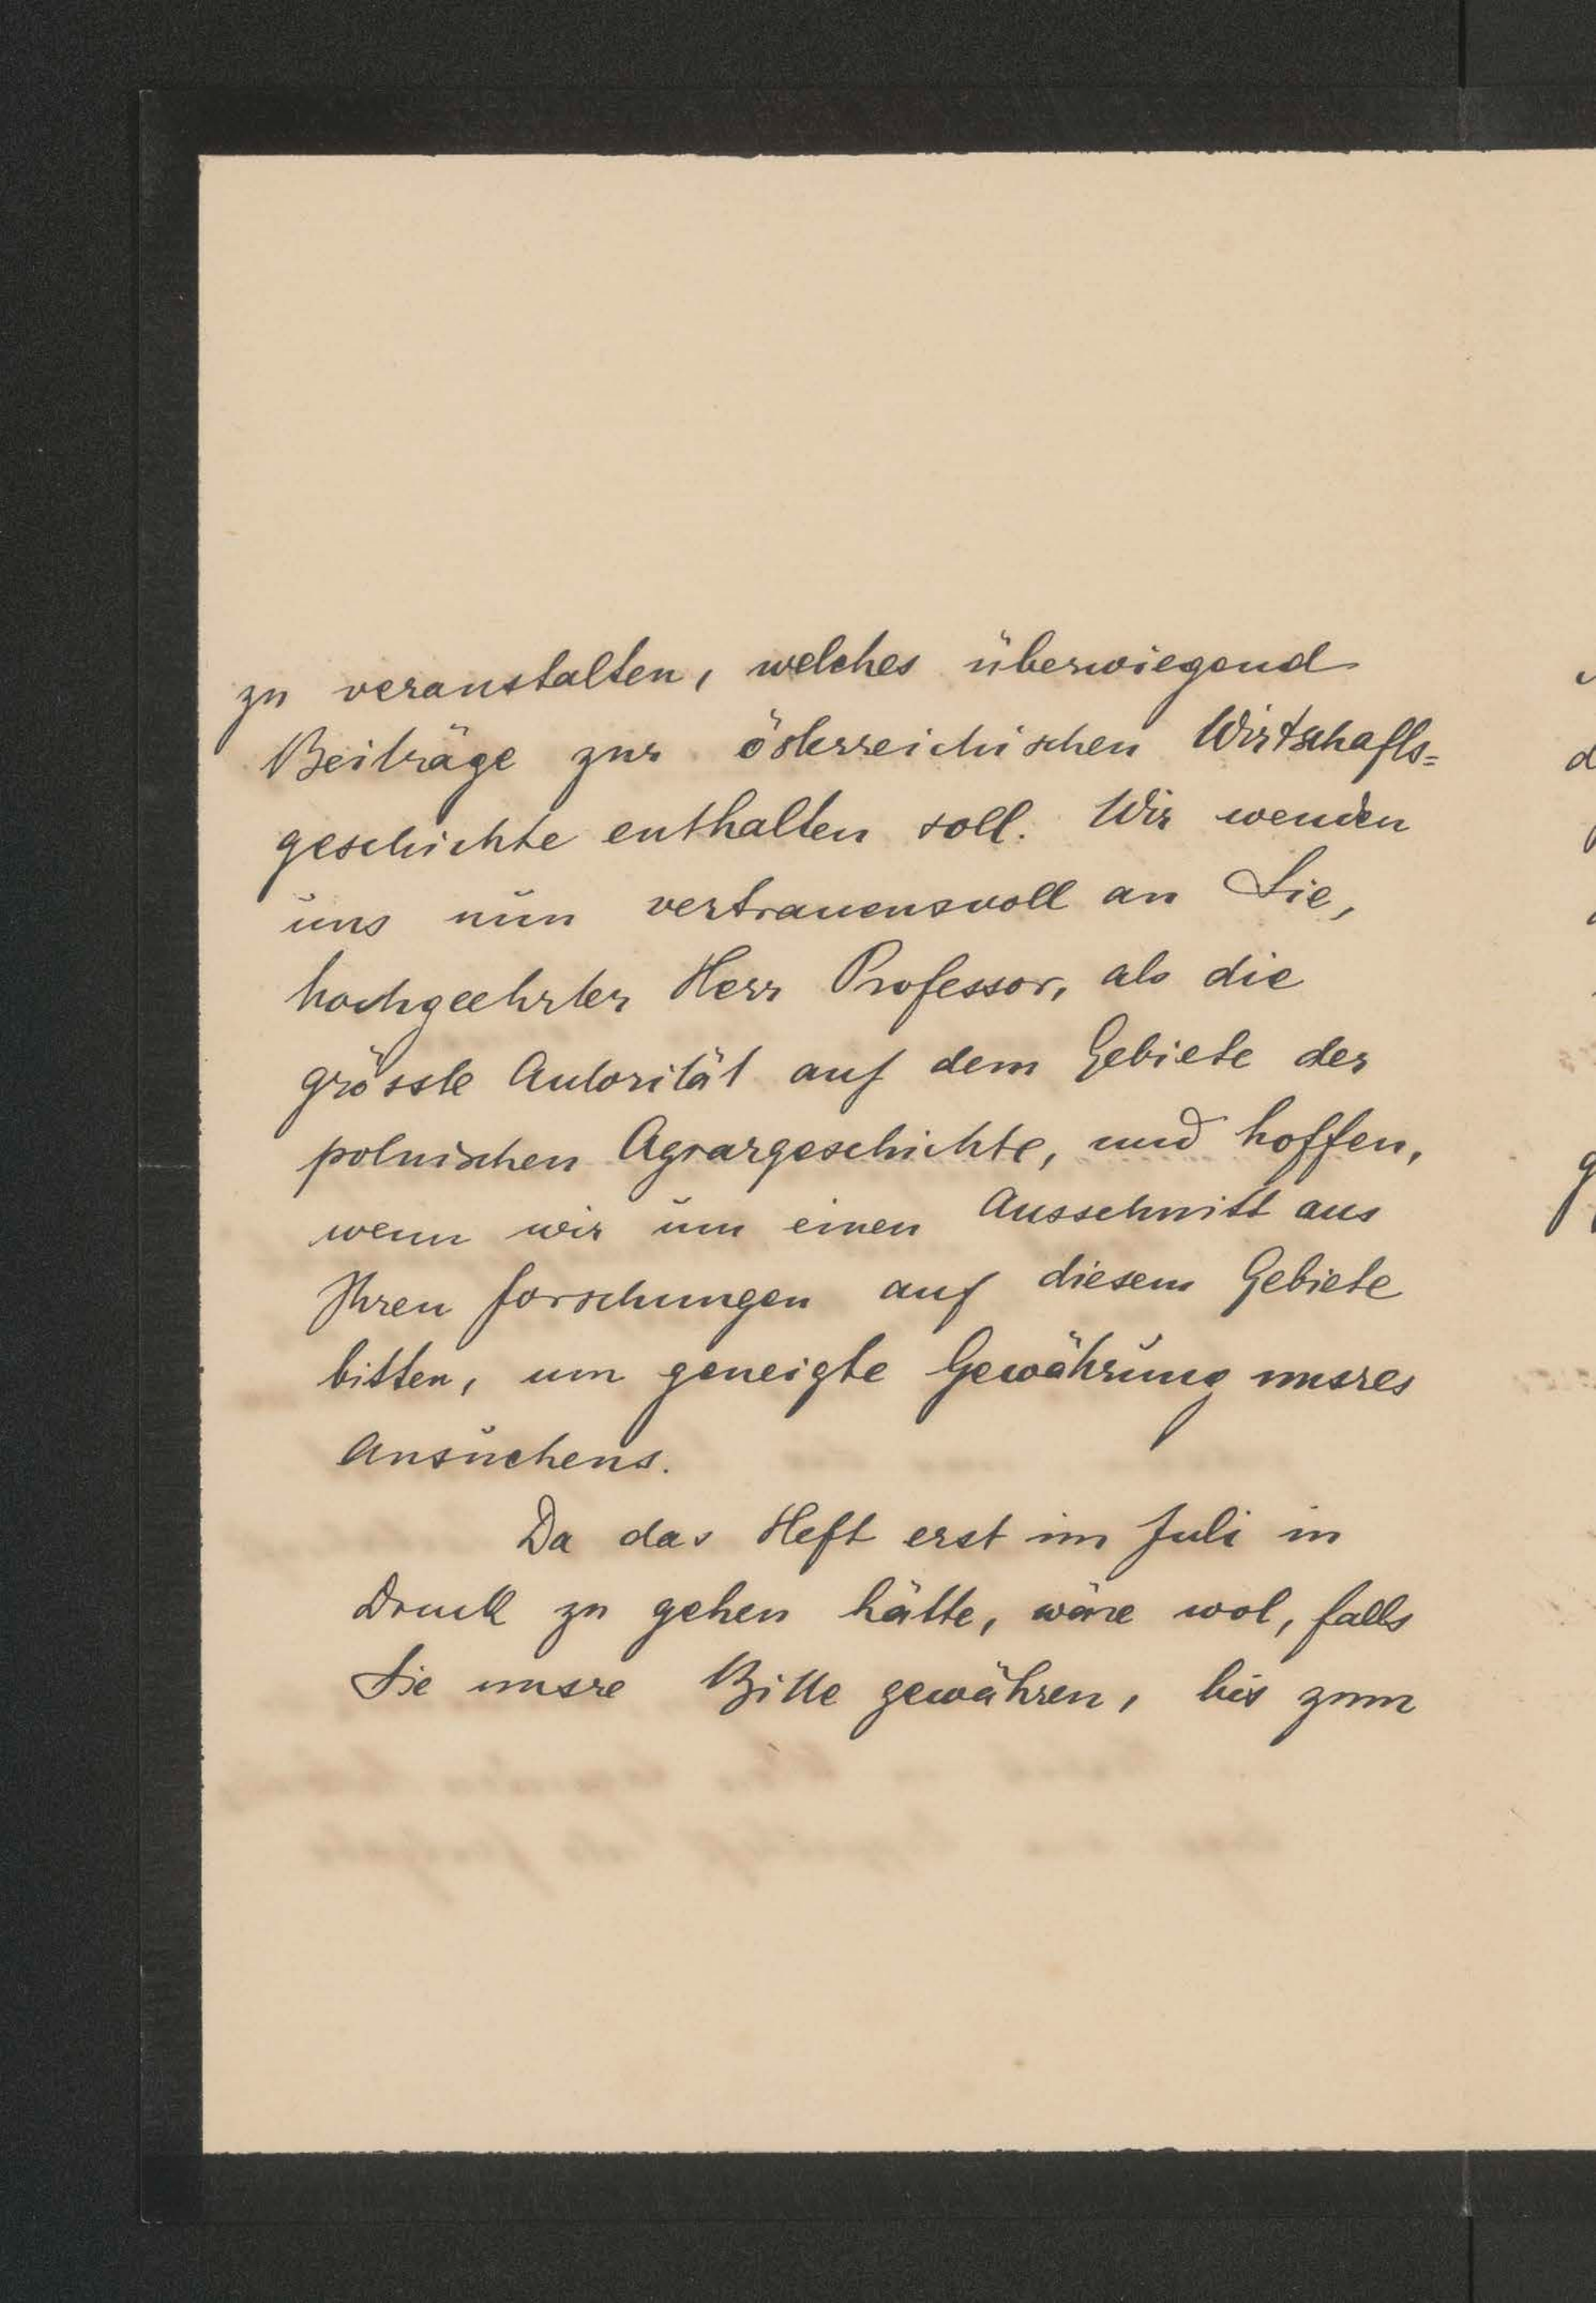 zu veranstalten, welches überwiegend
Beiträge zur österreichischen Wirtschafts=
geschichte enthalten soll. Wir wenden
uns nun vertrauensvoll an Sie,
hochgeehrter Herr Professor, als die
grösste Autorität auf dem Gebiete der
polnischen Agrargeschichte, und hoffen,
wenn wir um einen Ausschnitt aus
Ihren Forschungen auf diesem Gebiete
bitten, um geneigte Gewährung unsres
Ansuchens.
Da das Heft erst im Juli in
Druck zu gehen hätte, wäre wol, falls
Sie unsre Bitte gewähren, bis zum